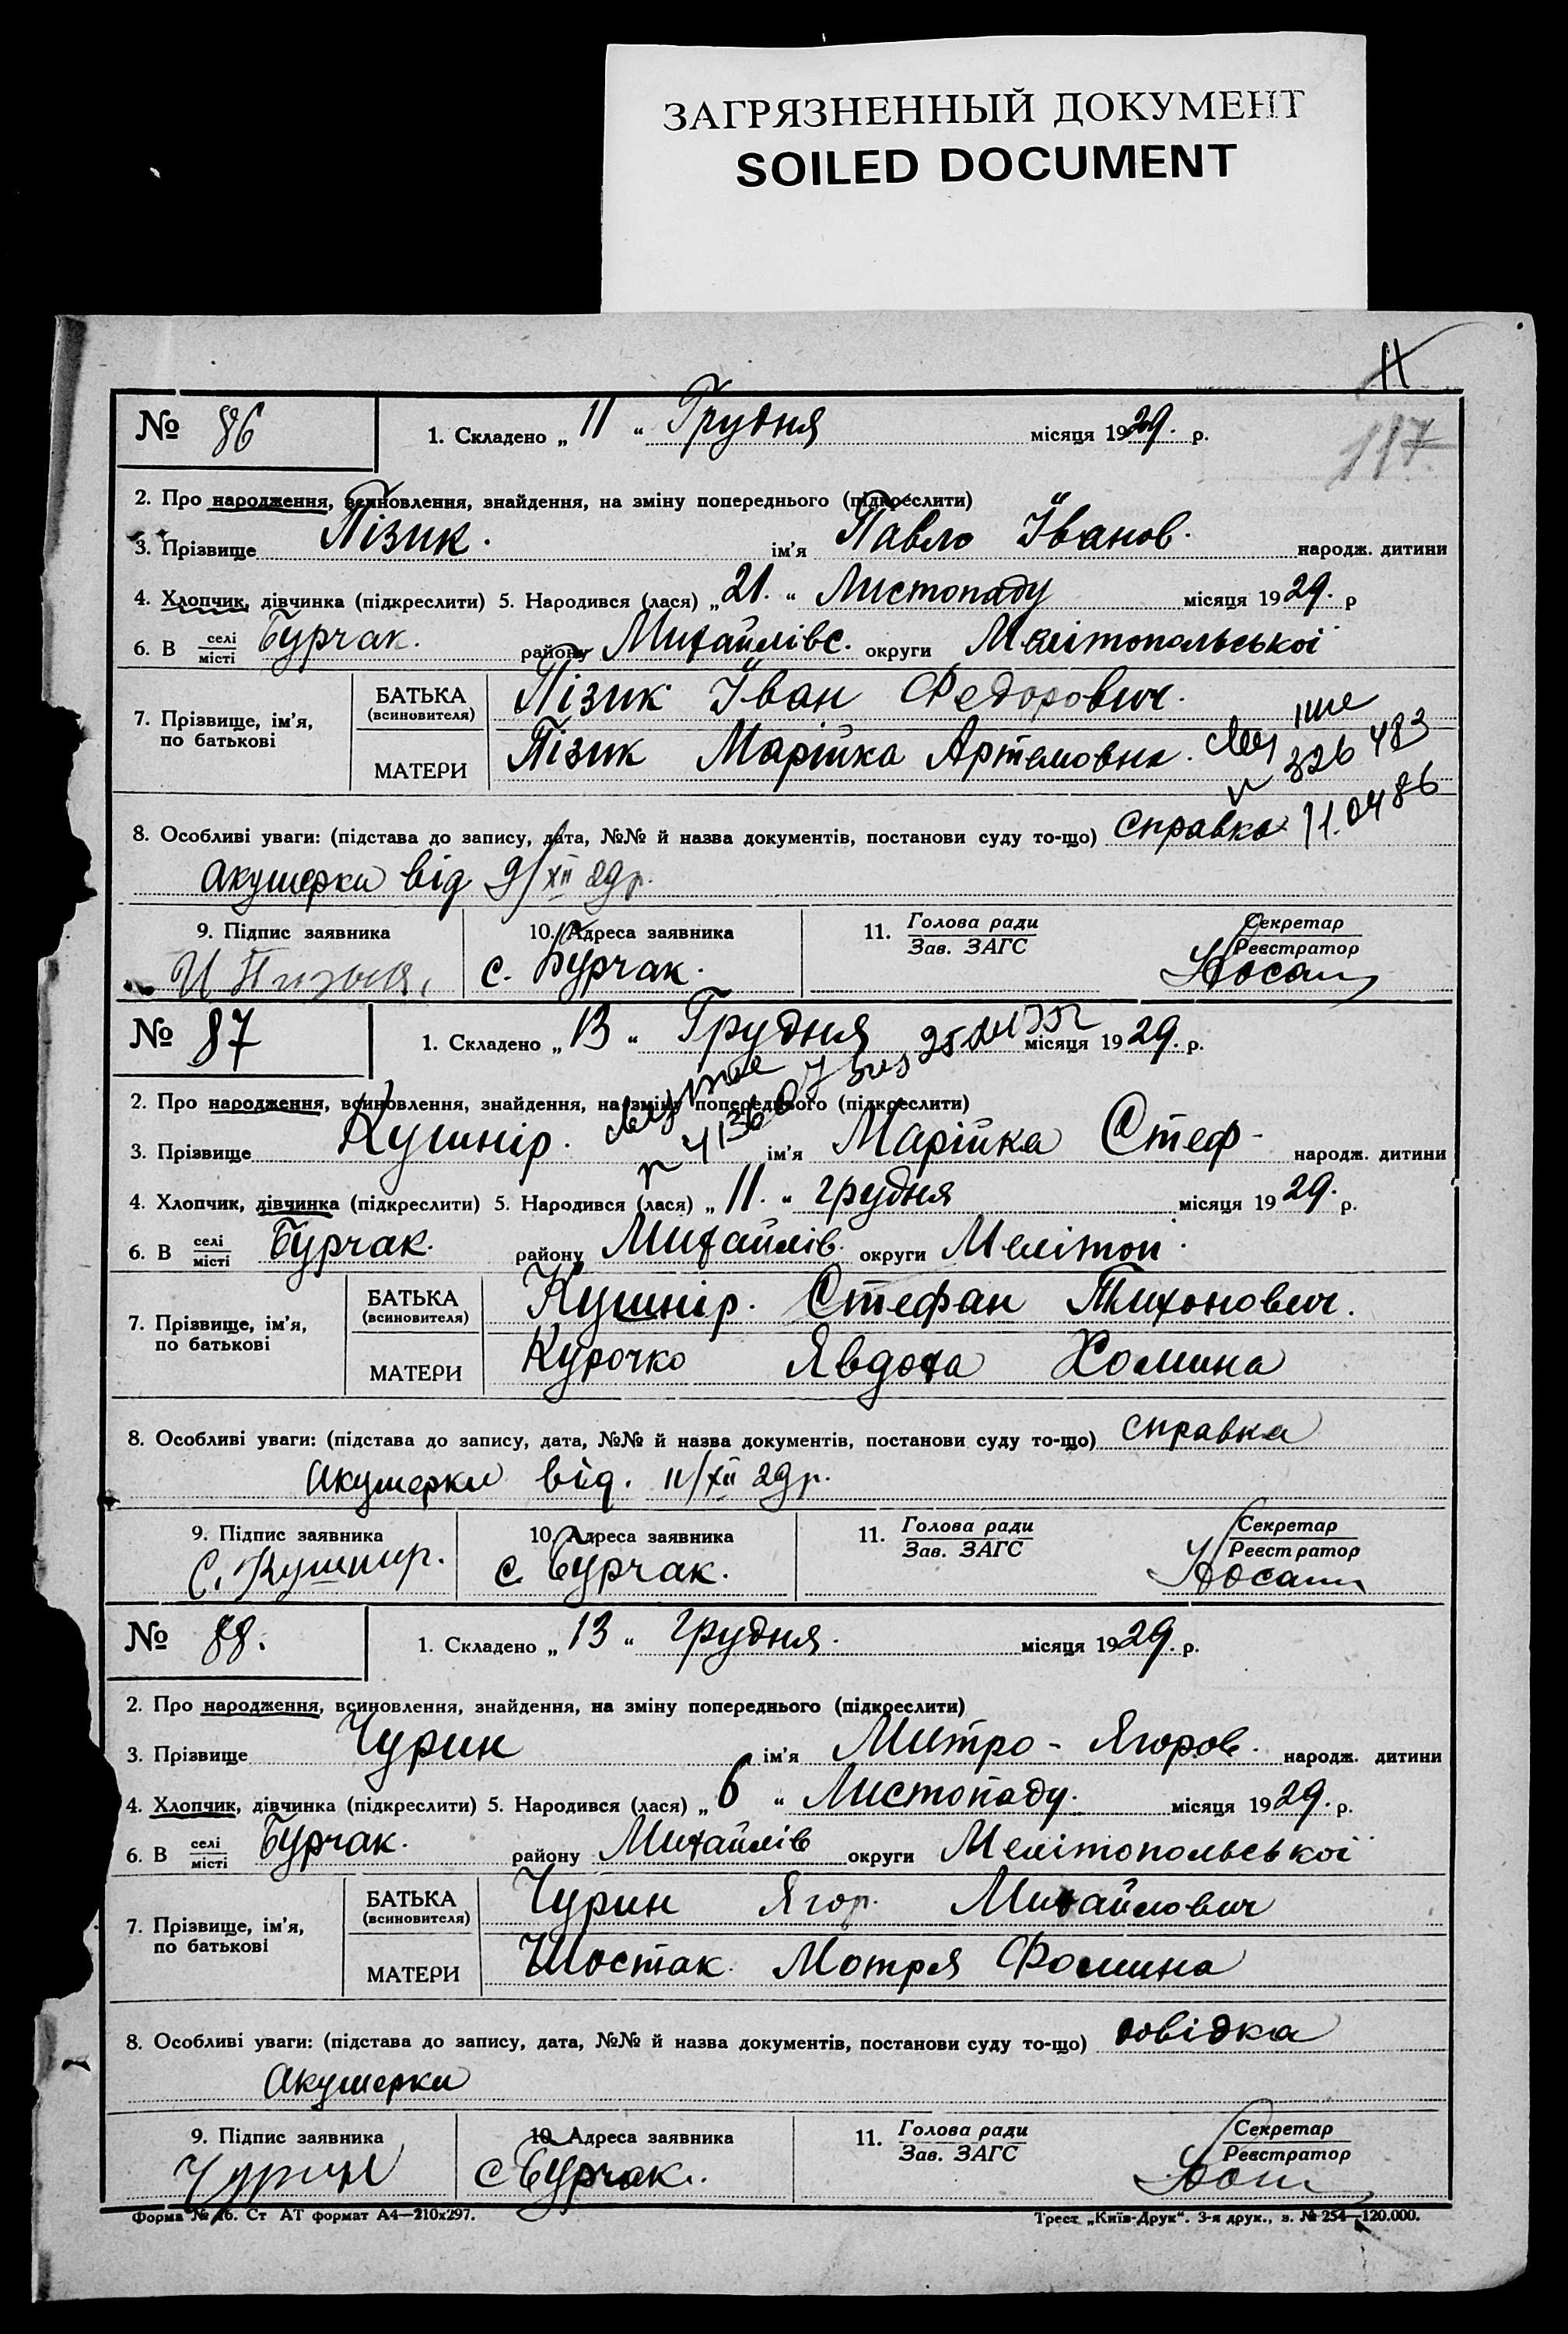 ЗАГРЯЗНЕННЫЙ ДОКУМЕНТ
SOILED DOCUMENT
117
№ 86
1. Складено „ 11 “ Грудня місяця 1929. р.
2. Про народження, всиновлення, знайдення, на зміну попереднього (підкреслити)
3. Прізвище Пізик. ім'я Павло Іванов. народж. дитини
4. Хлопчик, дівчинка (підкреслити) 5. Народився (лася) „ 21. “ Листопаду місяця 1929. р
6. В селі/місті Бурчак. району Михайлівс. округи Мелітопольської
7. Прізвище, ім'я, по батькові
БАТЬКА (всиновителя) Пізик Іван Федорович.
МАТЕРИ Пізик Марійка Артемовна.
326483
8. Особливі уваги: (підстава до запису, дата, №№ й назва документів, постанови суду то-що) справка 11.04 86
акушерки від 9/XII 29 р.
9. Підпис заявника 10. Адреса заявника 11. Голова ради/Зав. ЗАГС Секретар/Реєстратор
с. Бурчак.
№ 87
1. Складено „ 13 “ Грудня місяця 1929. р.
2. Про народження, всиновлення, знайдення, на зміну попереднього (підкреслити)
3. Прізвище Кушнір. ім'я Марійка Стеф- народж. дитини
4. Хлопчик, дівчинка (підкреслити) 5. Народився (лася) „ 11. “ грудня місяця 1929. р.
6. В селі/місті Бурчак. району Михайлів. округи Мелітоп.
7. Прізвище, ім'я, по батькові
БАТЬКА (всиновителя) Кушнір. Стефан Тихонович.
МАТЕРИ Курочко Явдоха Хомина
8. Особливі уваги: (підстава до запису, дата, №№ й назва документів, постанови суду то-що) справка
акушерки від. 11/XII 29 р.
9. Підпис заявника 10. Адреса заявника 11. Голова ради/Зав. ЗАГС Секретар/Реєстратор
С. Кушнир. с. Бурчак.
№ 88.
1. Складено „ 13 “ грудня. місяця 1929. р.
2. Про народження, всиновлення, знайдення, на зміну попереднього (підкреслити)
3. Прізвище Чурин ім'я Митро - Ягоров. народж. дитини
4. Хлопчик, дівчинка (підкреслити) 5. Народився (лася) „ 6 “ Листопаду. місяця 1929. р.
6. В селі/місті Бурчак. району Михайлів округи Мелітопольської
7. Прізвище, ім'я, по батькові
БАТЬКА (всиновителя) Чурин Ягор. Михайлович
МАТЕРИ Шостак. Мотря Фомина
8. Особливі уваги: (підстава до запису, дата, №№ й назва документів, постанови суду то-що) довідка
акушерки
9. Підпис заявника 10. Адреса заявника 11. Голова ради/Зав. ЗАГС Секретар/Реєстратор
Чурин с Бурчак.
Форма № 16. Ст АТ формат А4—210х297. Трест „Київ-Друк“. 3-я друк., з. № 254—120.000.